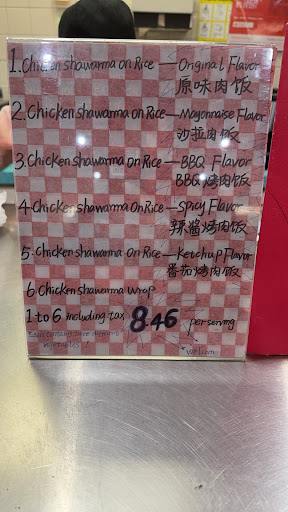 1. Chicken shawarma on Rice — Original Flavor
原味肉饭
2. Chicken shawarma on Rice — Mayonnaise Flavor
沙拉肉饭
3. Chicken shawarma on Rice — BBQ Flavor
BBQ 烤肉饭
4. Chicken shawarma on Rice — Spicy Flavor
辣酱烤肉饭
5. Chicken shawarma on Rice — Ketchup Flavor
番茄烤肉饭
6 Chicken shawarma wrap
1 to 6 including tax 8.46 per serving
vegetables !